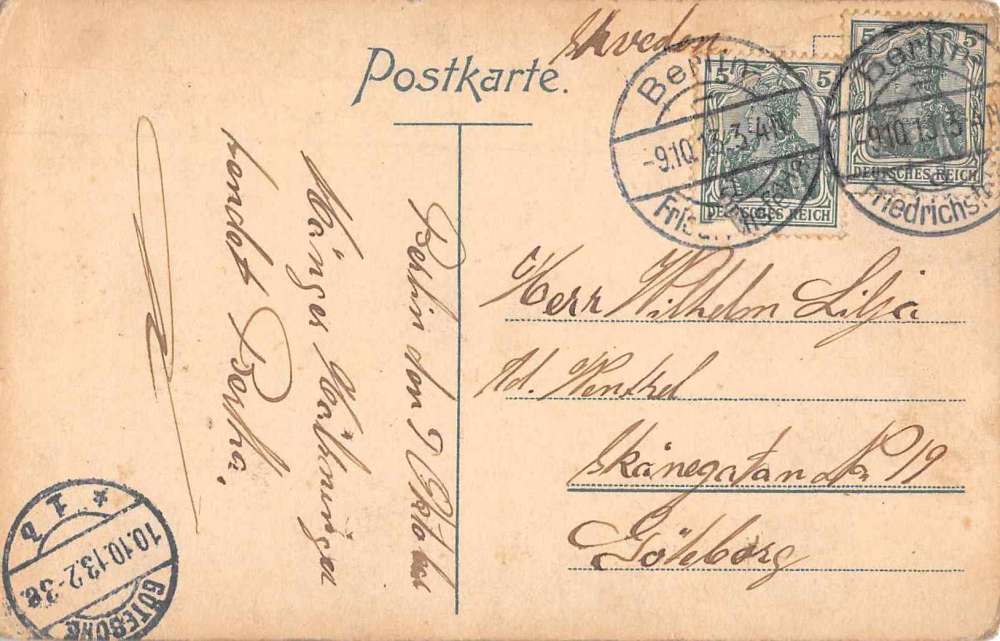 Skveden.
Postkarte.
5 5
DEUTSCHES REICH
5 5
DEUTSCHES REICH
Berlin
-9.10.13.3-4N
Berlin
-9.10.13.3-4N
Friedrichsf
Berlin den 9 Oktober
Många Hälsningar
sendet Bertha,
Herr Wilhelm Lilja
Ad. Wenkel
Skånegatan No 19
Göteborg
* 1 *
10.10.13.2-3e.
GÖTEBORG